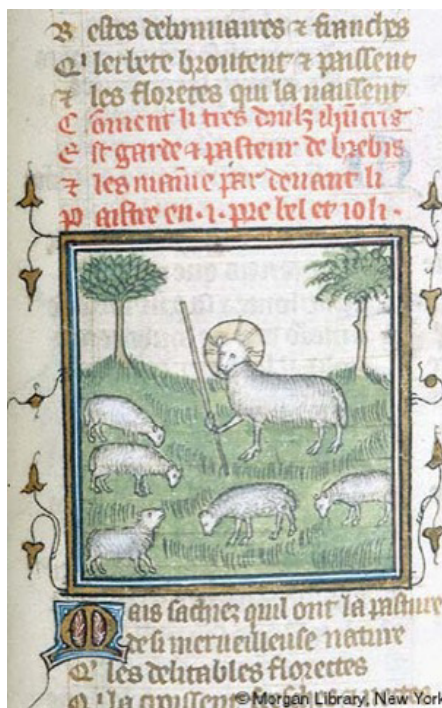 B estes debonnaires & franches
Q' lerbete broutent & paissent
& les floretes qui la naissent
C oment li tres doulz ihūcris
E st garde & pasteur de brebis
& les maine par deuant li
P aistre en .i. pre bel et ioli .
M ais sachiez quil ont la pasture
de si merueilleuse nature
Q' les delitables florettes
la
© Morgan Library, New York